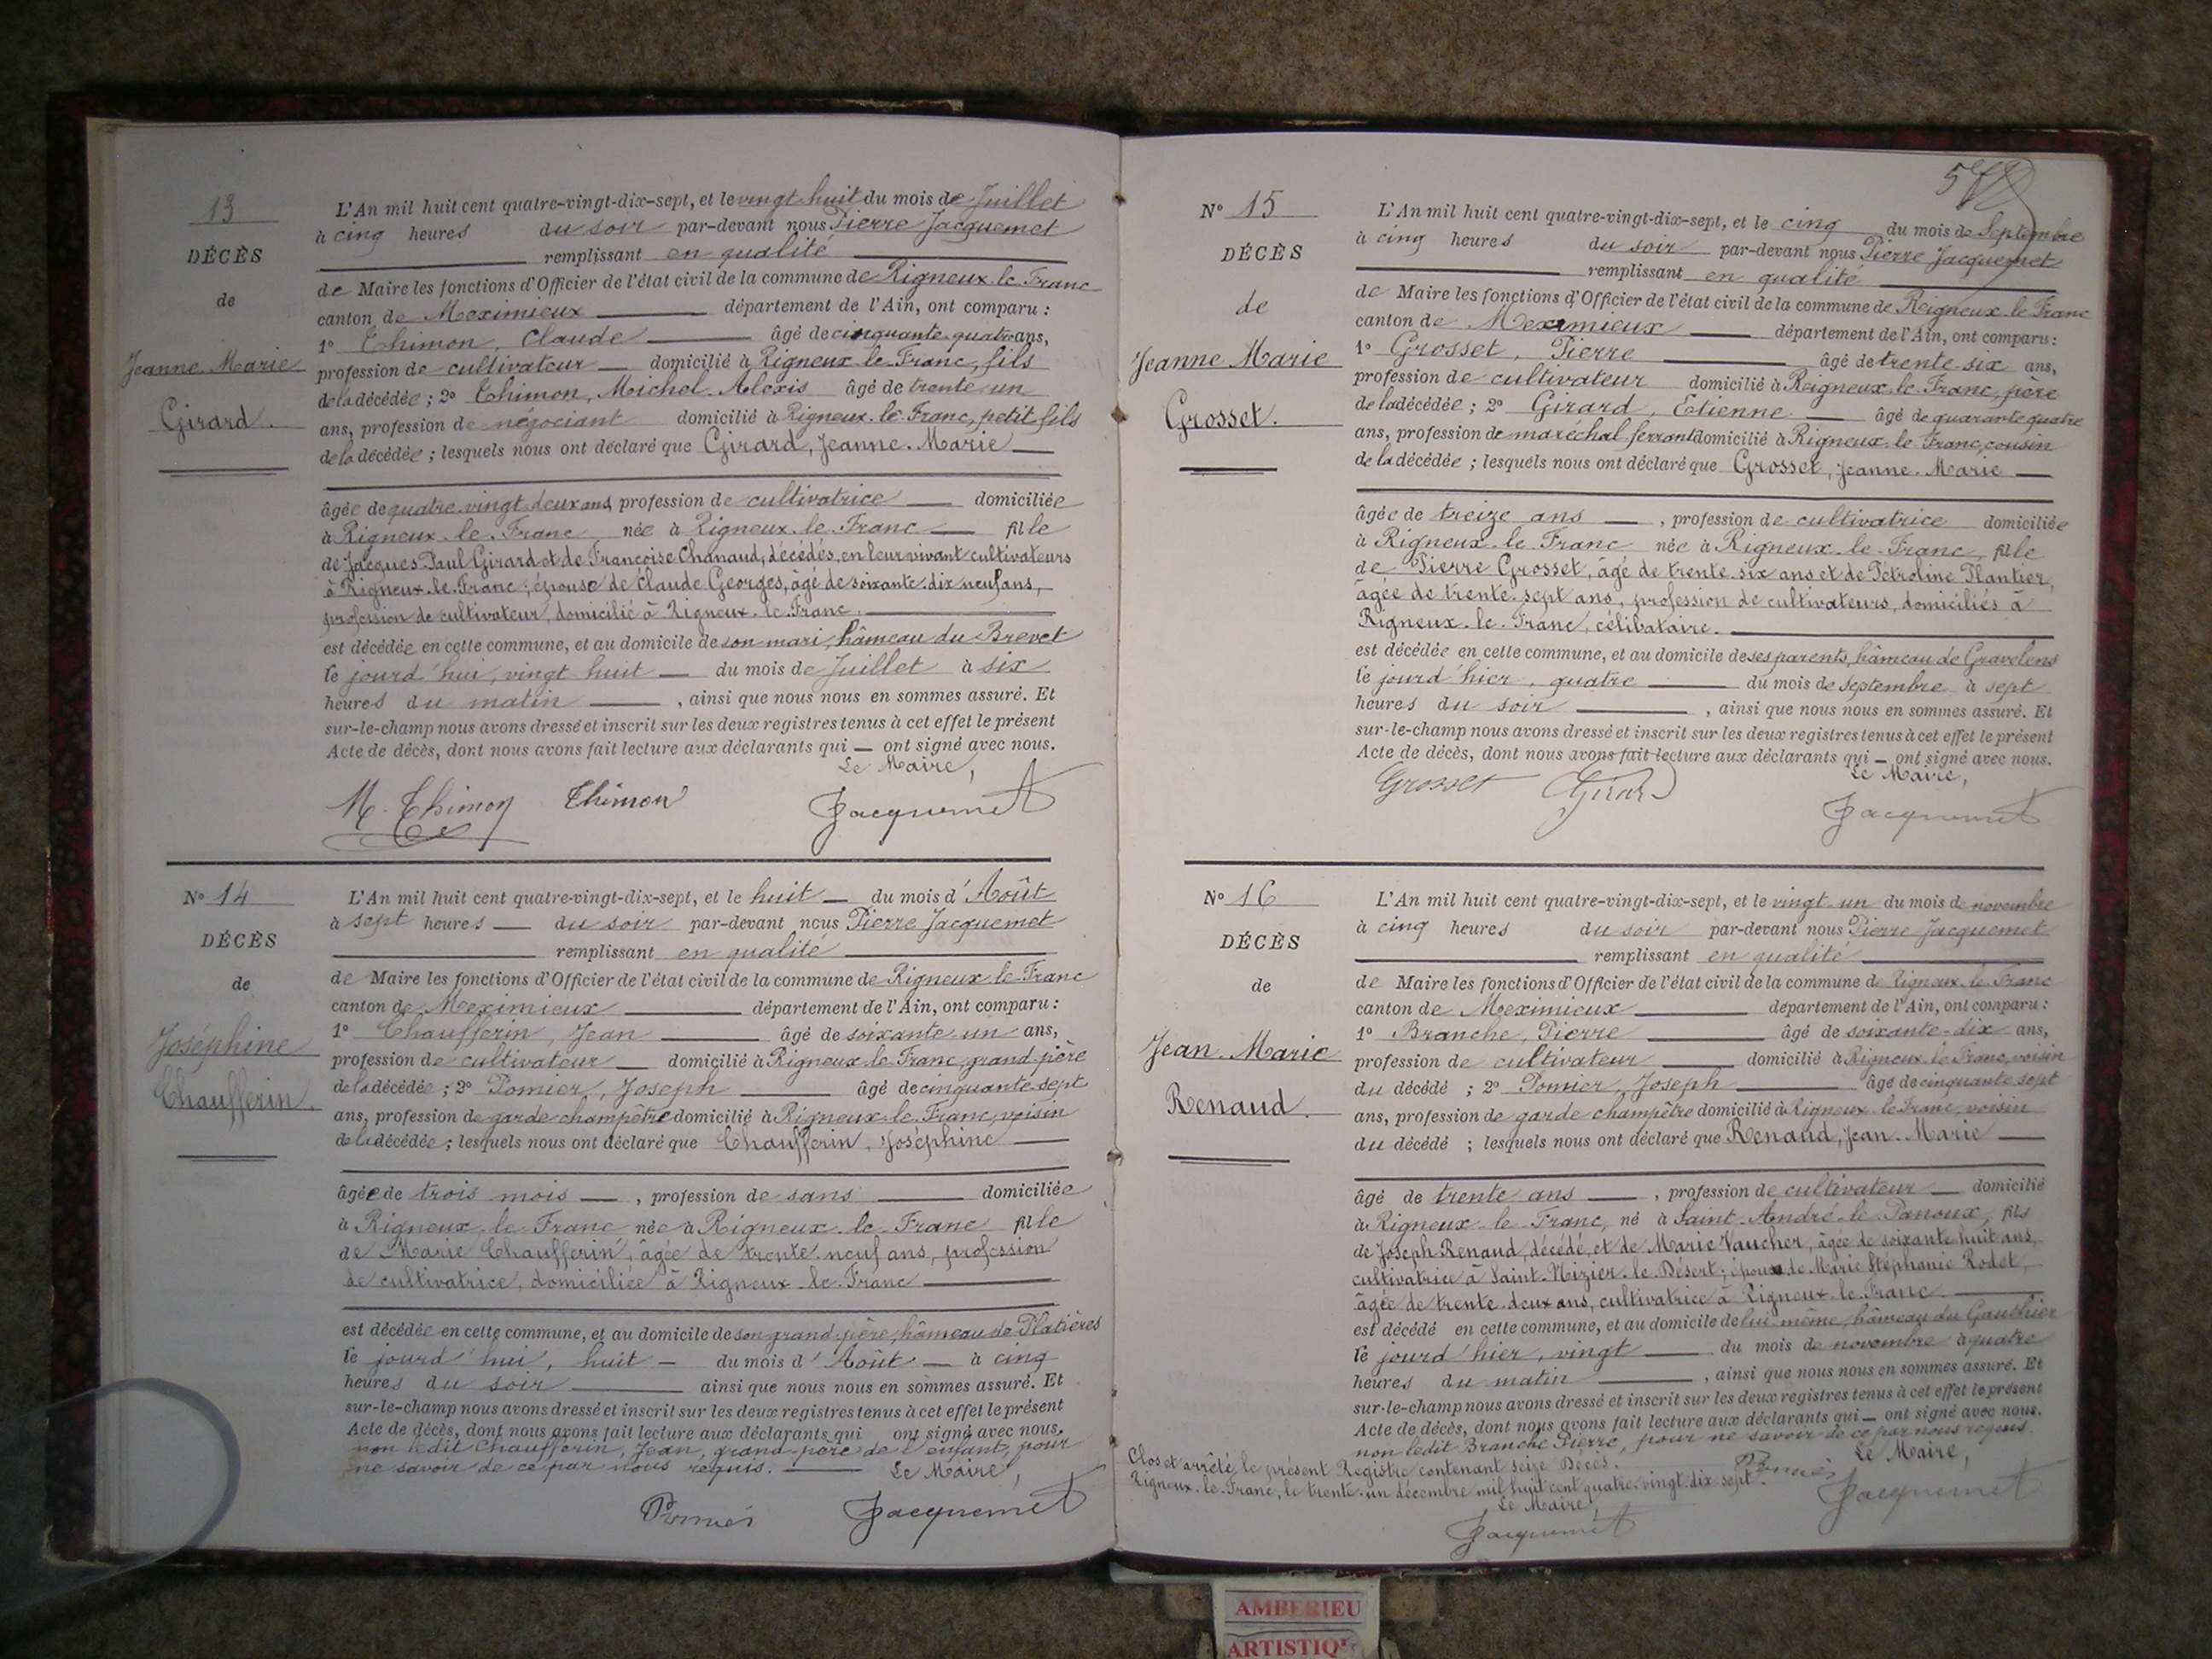 13
DÉCÈS
de
Jeanne Marie
Girard.
L'An mil huit cent quatre-vingt-dix-sept, et le vingt huit du mois de Juillet
à cinq heures du soir par-devant nous Pierre Jacquemet
remplissant en qualité
de Maire les fonctions d'Officier de l'état civil de la commune de Rigneux-le-Franc
canton de Meximieux département de l'Ain, ont comparu :
1° Thimon, Claude âgé de cinquante-quatre ans,
profession de cultivateur domicilié à Rigneux-le-Franc, fils
de la décédée ; 2° Thimon, Michel Alexis âgé de trente-un
ans, profession de négociant domicilié à Rigneux-le-Franc, petit-fils
de la décédée ; lesquels nous ont déclaré que Girard, Jeanne-Marie
âgée de quatre-vingt-deux ans, profession de cultivatrice domiciliée
à Rigneux-le-Franc née à Rigneux-le-Franc fille
de Jacques-Paul Girard et de Françoise Chanaud, décédés, en leur vivant cultivateurs
à Rigneux-le-Franc ; épouse de Claude Georges, âgé de soixante-dix neuf ans,
profession de cultivateur, domicilié à Rigneux-le-Franc.
est décédée en cette commune, et au domicile de son mari, hâmeau du Brevet
le jourd'hui, vingt huit du mois de Juillet à six
heures du matin , ainsi que nous nous en sommes assuré. Et
sur-le-champ nous avons dressé et inscrit sur les deux registres tenus à cet effet le présent
Acte de décès, dont nous avons fait lecture aux déclarants qui — ont signé avec nous.
Le Maire,
M. Thimon Thimon Jacquemet
N° 14
DÉCÈS
de
Joséphine
Chaufferin.
L'An mil huit cent quatre-vingt-dix-sept, et le huit du mois d'Août
à sept heures du soir par-devant nous Pierre Jacquemet
remplissant en qualité
de Maire les fonctions d'Officier de l'état civil de la commune de Rigneux-le-Franc
canton de Meximieux département de l'Ain, ont comparu :
1° Chaufferin, Jean âgé de soixante-un ans,
profession de cultivateur domicilié à Rigneux-le-Franc, grand-père
de la décédée ; 2° Pomier, Joseph âgé de cinquante-sept
ans, profession de garde champêtre domicilié à Rigneux-le-Franc, voisin
de la décédée ; lesquels nous ont déclaré que Chaufferin, Joséphine
âgée de trois mois , profession de sans domiciliée
à Rigneux-le-Franc née à Rigneux-le-Franc fille
de Marie Chaufferin, âgée de trente-neuf ans, profession
de cultivatrice, domiciliée à Rigneux-le-Franc
est décédée en cette commune, et au domicile de son grand-père, hâmeau de Platières
le jourd'hui, huit du mois d'Août à cinq
heures du soir ainsi que nous nous en sommes assuré. Et
sur-le-champ nous avons dressé et inscrit sur les deux registres tenus à cet effet le présent
Acte de décès, dont nous avons fait lecture aux déclarants qui ont signé avec nous.
non ledit Chaufferin, Jean, grand-père de l'enfant, pour
ne savoir de ce par nous requis. Le Maire,
Pomier Jacquemet
N° 15
DÉCÈS
de
Jeanne Marie
Grosset.
L'An mil huit cent quatre-vingt-dix-sept, et le cinq du mois de Septembre
à cinq heures du soir par-devant nous Pierre Jacquemet
remplissant en qualité
de Maire les fonctions d'Officier de l'état civil de la commune de Rigneux-le-Franc
canton de Meximieux département de l'Ain, ont comparu :
1° Grosset, Pierre âgé de trente-six ans,
profession de cultivateur domicilié à Rigneux-le-Franc, père
de la décédée ; 2° Girard, Etienne âgé de quarante-quatre
ans, profession de maréchal ferrant domicilié à Rigneux-le-Franc, cousin
de la décédée ; lesquels nous ont déclaré que Grosset, Jeanne-Marie
âgée de treize ans , profession de cultivatrice domiciliée
à Rigneux-le-Franc née à Rigneux-le-Franc, fille
de Pierre Grosset, âgé de trente-six ans et de Pétroline Plantier,
âgée de trente-sept ans, profession de cultivateurs, domiciliés à
Rigneux-le-Franc, célibataire.
est décédée en cette commune, et au domicile de ses parents, hâmeau de Gravelens
le jourd'hier, quatre du mois de Septembre à sept
heures du soir , ainsi que nous nous en sommes assuré. Et
sur-le-champ nous avons dressé et inscrit sur les deux registres tenus à cet effet le présent
Acte de décès, dont nous avons fait lecture aux déclarants qui — ont signé avec nous.
Le Maire,
Grosset Girard Jacquemet
N° 16
DÉCÈS
de
Jean Marie
Renaud.
L'An mil huit cent quatre-vingt-dix-sept, et le vingt-un du mois de novembre
à cinq heures du soir par-devant nous Pierre Jacquemet
remplissant en qualité
de Maire les fonctions d'Officier de l'état civil de la commune de Rigneux-le-Franc
canton de Meximieux département de l'Ain, ont comparu :
1° Branche, Pierre âgé de soixante-dix ans,
profession de cultivateur domicilié à Rigneux-le-Franc, voisin
du décédé ; 2° Pomier, Joseph âgé de cinquante sept
ans, profession de garde champêtre domicilié à Rigneux-le-Franc, voisin
du décédé ; lesquels nous ont déclaré que Renaud, Jean-Marie
âgé de trente ans , profession de cultivateur domicilié
à Rigneux-le-Franc, né à Saint-André-le-Panoux, fils
de Joseph Renaud, décédé, et de Marie Vaucher, âgée de soixante huit ans,
cultivatrice à Saint-Nizier-le-Désert ; époux de Marie Stéphanie Rodet,
âgée de trente-deux ans, cultivatrice à Rigneux-le-Franc.
est décédé en cette commune, et au domicile de lui-même, hâmeau du Gauthier
le jourd'hier, vingt du mois de novembre à quatre
heures du matin , ainsi que nous nous en sommes assuré. Et
sur-le-champ nous avons dressé et inscrit sur les deux registres tenus à cet effet le présent
Acte de décès, dont nous avons fait lecture aux déclarants qui — ont signé avec nous.
non ledit Branche Pierre, pour ne savoir de ce par nous requis.
Le Maire,
Pomier Jacquemet
Clos et arrêté le présent Registre contenant seize Décès.
Rigneux-le-Franc, le trente-un décembre mil huit cent quatre-vingt-dix sept.
Le Maire,
Jacquemet
AMBERIEU